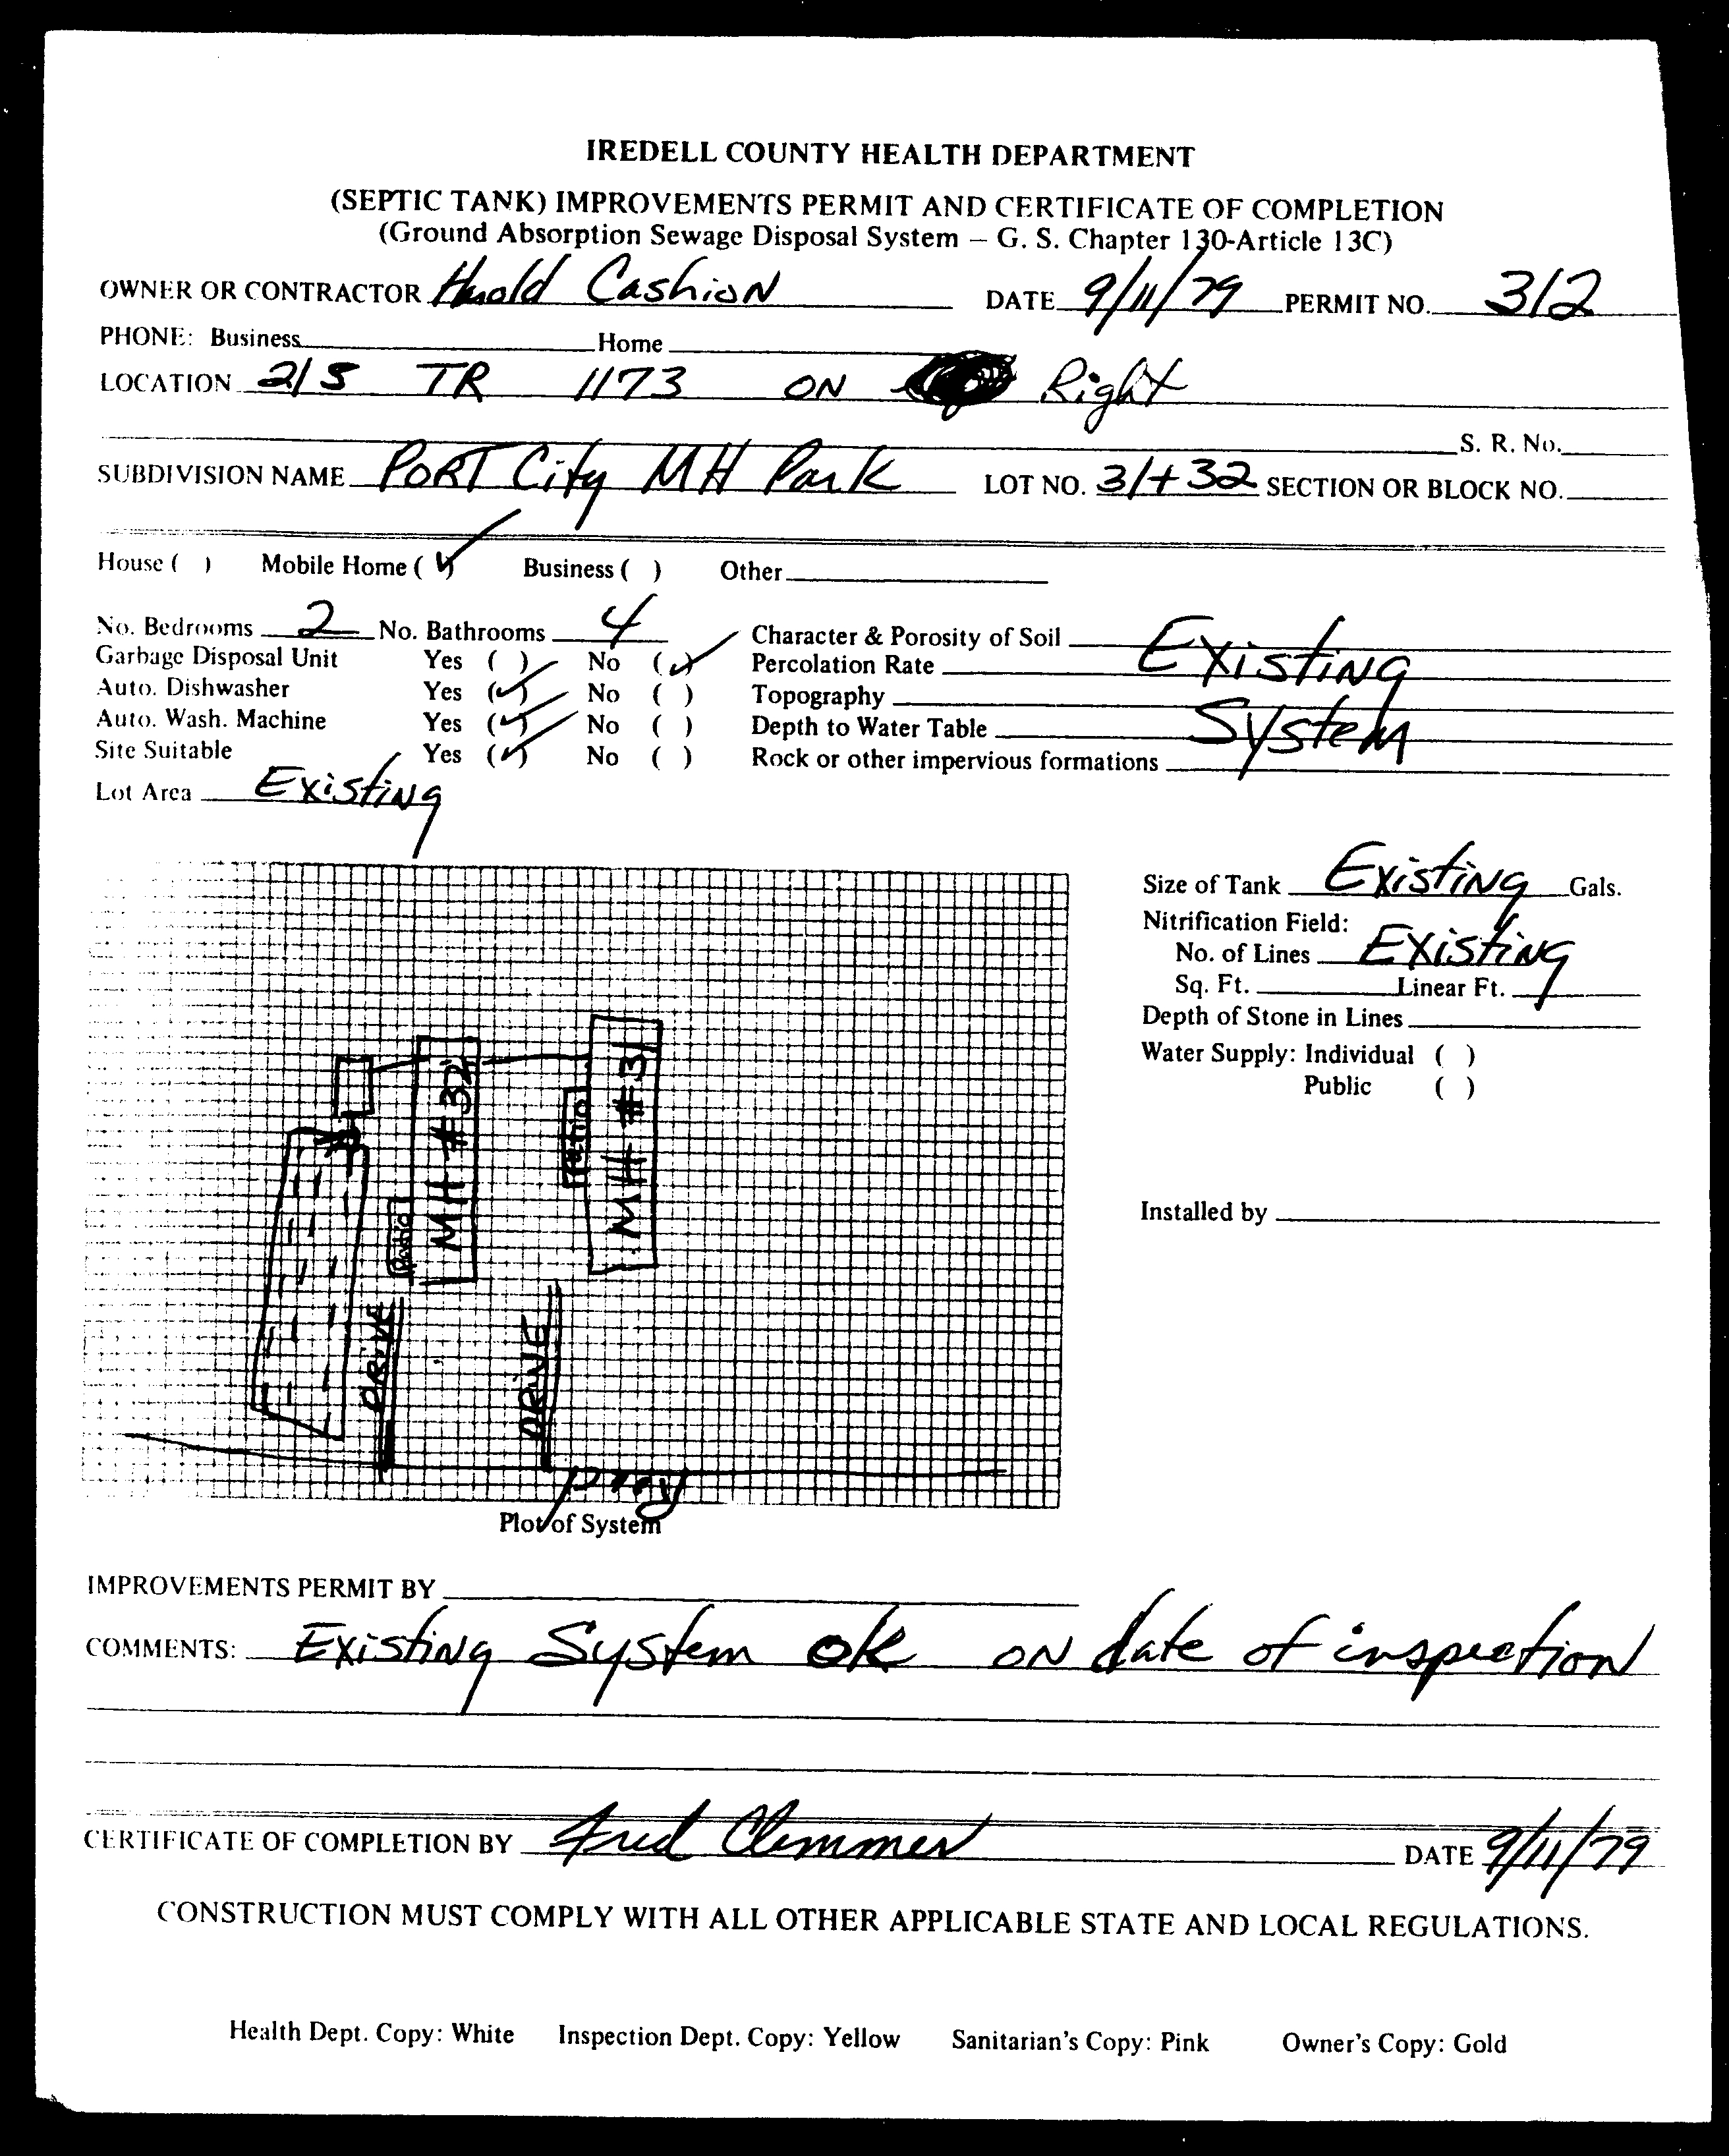 IREDELL COUNTY HEALTH DEPARTMENT
(SEPTIC TANK) IMPROVEMENTS PERMIT AND CERTIFICATE OF COMPLETION
(Ground Absorption Sewage Disposal System – G. S. Chapter 130-Article 13C)
OWNER OR CONTRACTOR Harold Cashion DATE 9/11/79 PERMIT NO. 312
PHONE: Business Home
LOCATION 21 S TR 1173 ON Right
S. R. No.
SUBDIVISION NAME PORT City MH Park LOT NO. 31+32 SECTION OR BLOCK NO.
House ( ) Mobile Home (✓) Business ( ) Other
No. Bedrooms 2 No. Bathrooms 4 Character & Porosity of Soil Existing
Garbage Disposal Unit Yes ( ) No (✓) Percolation Rate
Auto. Dishwasher Yes (✓) No ( ) Topography
Auto. Wash. Machine Yes (✓) No ( ) Depth to Water Table System
Site Suitable Yes (✓) No ( ) Rock or other impervious formations
Lot Area Existing
Size of Tank Existing Gals.
Nitrification Field:
No. of Lines Existing
Sq. Ft. Linear Ft.
Depth of Stone in Lines
Water Supply: Individual ( )
Public ( )
Installed by
MH #32
MH #31
Patio
Patio
DRIVE
DRIVE
Plot of System
IMPROVEMENTS PERMIT BY
COMMENTS: Existing System ok ON date of inspection
CERTIFICATE OF COMPLETION BY Fred Clemmer DATE 9/11/79
CONSTRUCTION MUST COMPLY WITH ALL OTHER APPLICABLE STATE AND LOCAL REGULATIONS.
Health Dept. Copy: White Inspection Dept. Copy: Yellow Sanitarian's Copy: Pink Owner's Copy: Gold